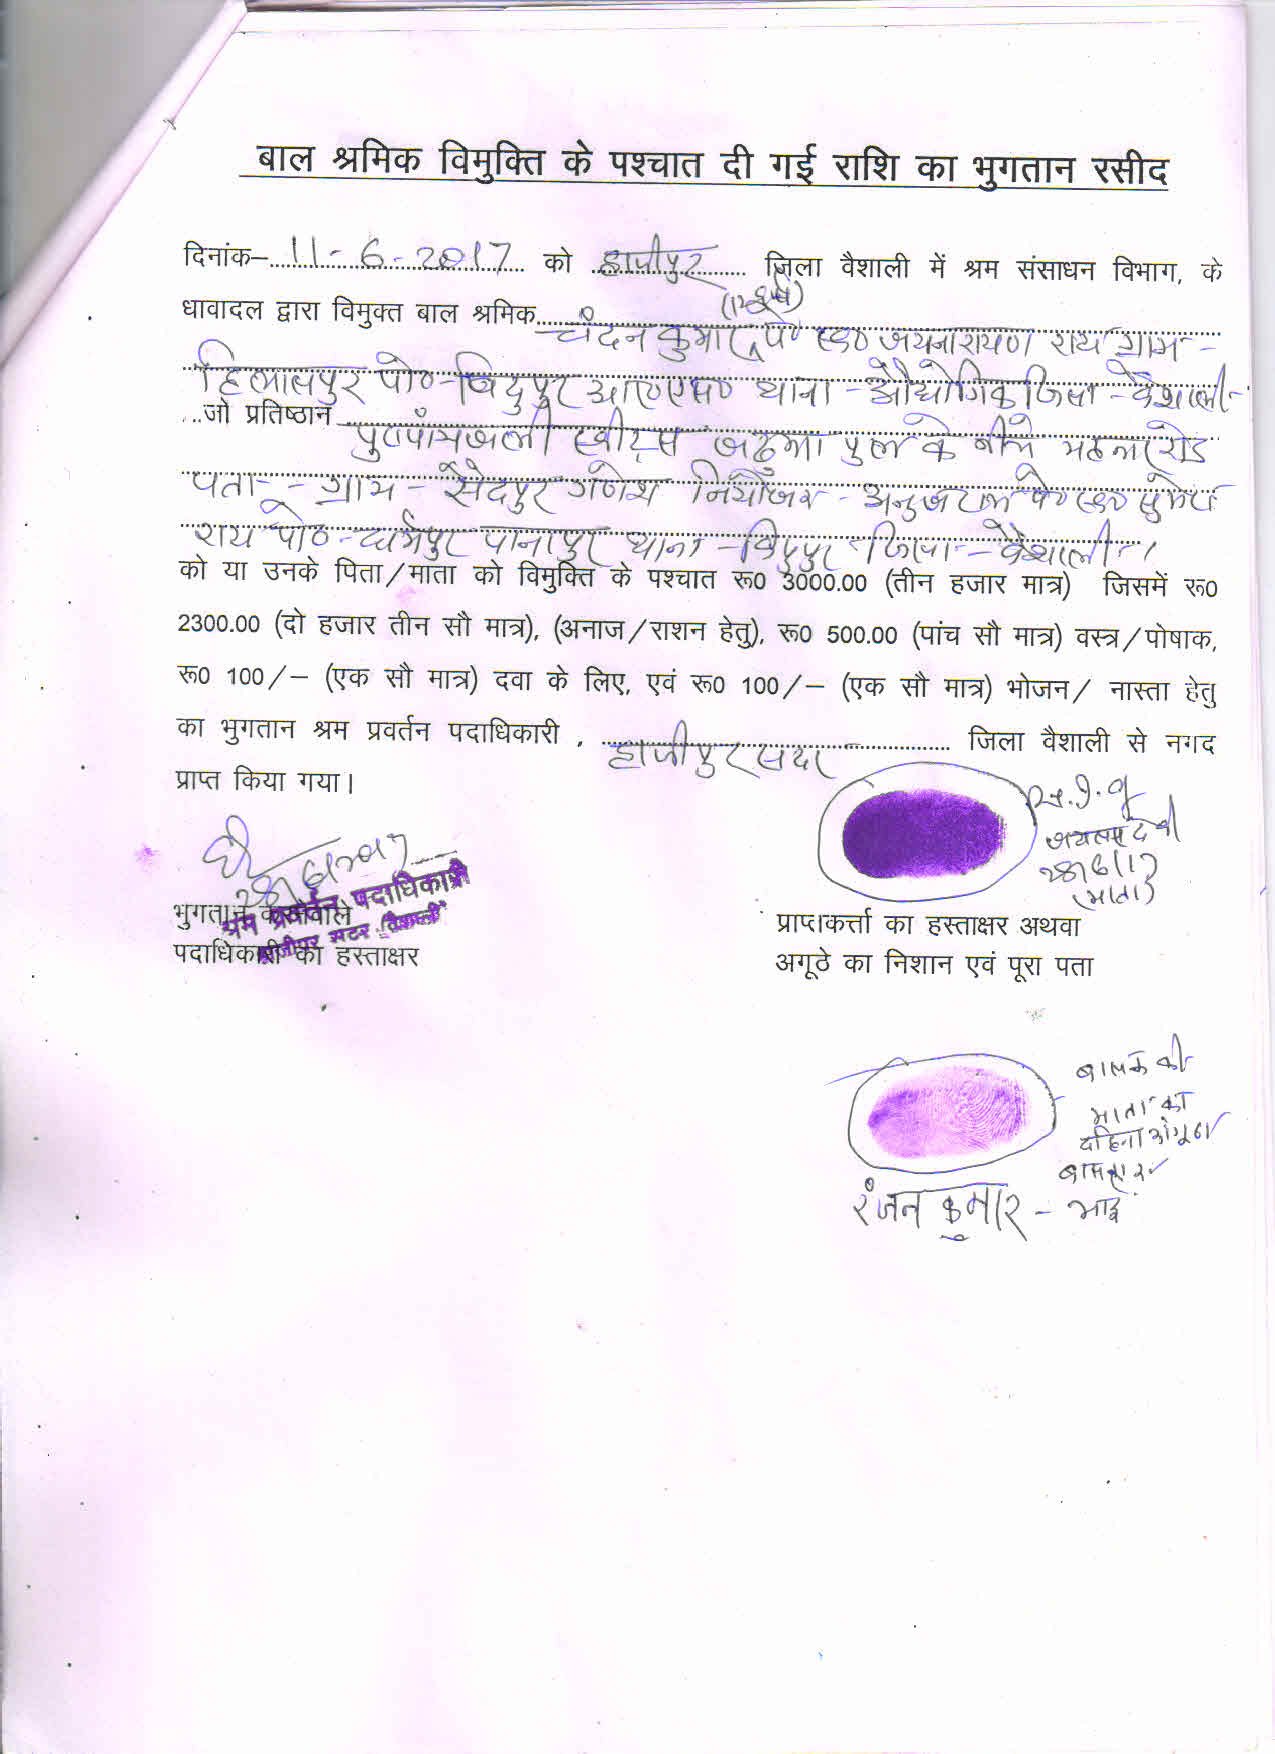 बाल श्रमिक विमुक्ति के पश्चात दी गई राशि का भुगतान रसीद
दिनांक–11-6-2017 को हाजीपुर जिला वैशाली में श्रम संसाधन विभाग, के
धावादल द्वारा विमुक्त बाल श्रमिक
चंदन कुमार पे० स्व० जयनारायण राय ग्राम-
हिलालपुर पो०-बिदुपुर आर०एस० थाना-औद्योगिक जिला-वैशाली-
जो प्रतिष्ठान
स्वीट्स जढुआ पुल के नीचे रोड
पता-ग्राम-सैदपुर गणेश नियोजक-अनुज राम पे० स्व०
राय पो०- पानापुर थाना-बिदुपुर जिला-वैशाली-।
को या उनके पिता/माता को विमुक्ति के पश्चात रू0 3000.00 (तीन हजार मात्र) जिसमें रू0
2300.00 (दो हजार तीन सौ मात्र), (अनाज/राशन हेतु), रू0 500.00 (पांच सौ मात्र) वस्त्र/पोषाक,
रू0 100/– (एक सौ मात्र) दवा के लिए, एवं रू0 100/– (एक सौ मात्र) भोजन/ नास्ता हेतु
का भुगतान श्रम प्रवर्तन पदाधिकारी , हाजीपुर सदर जिला वैशाली से नगद
प्राप्त किया गया।
देवी
28/6/17
(माता)
श्रम प्रवर्तन पदाधिकारी
हाजीपुर सदर (वैशाली)
भुगतान करनेवाले
पदाधिकारी का हस्ताक्षर
प्राप्तिकर्त्ता का हस्ताक्षर अथवा
अगूठे का निशान एवं पूरा पता
बालक की
माता का
दहिना अंगूठा
रंजन कुमार - भाई